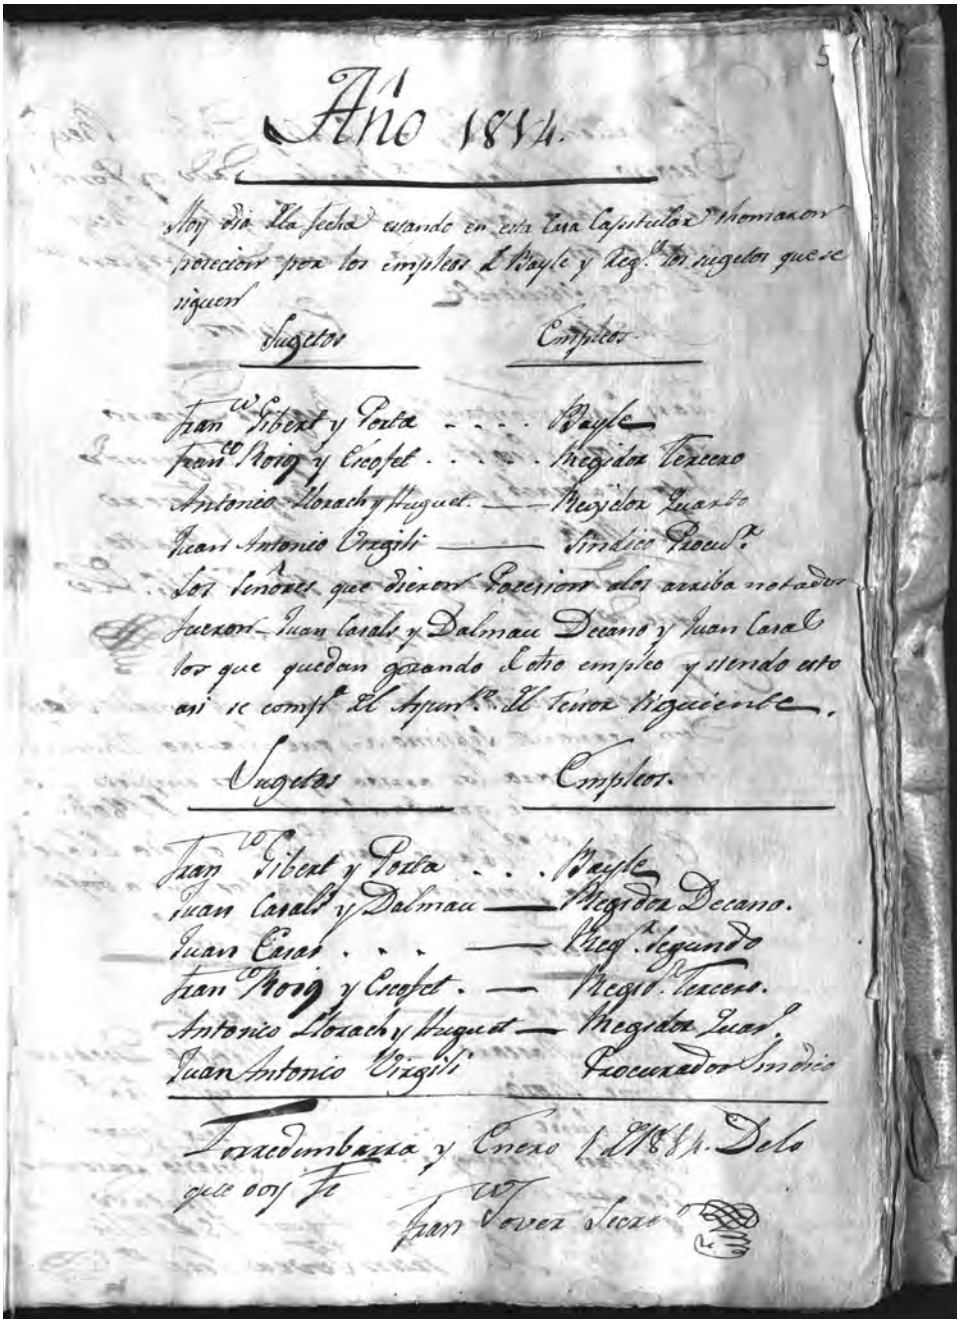 5
Año 1814.
Hoy dia de la fecha estando en esta Casa Capitular thomaron
pocecion por los empleos de Bayle y Regs. los sugetos que se
siguen
Sugetos Empleos.
Franco Gibert y Porta . . . . Bayle
Franco Roig y Escofet . . . . . Regidor Tercero
Antonio Llorach y Huguet. — Regidor Quarto
Juan Antonio Virgili — Sindico Procur.
Los Señores que dieron Pocesion a los arriba notados
fueron Juan Casals y Dalmau Decano y Juan Casas
los que quedan gozando el dho empleo y siendo esto
asi se el Ayunto. del Tenor siguiente.
Sugetos Empleos.
Franco Gibert y Porta . . . . Bayle
Juan Casals y Dalmau — Regidor Decano.
Juan Casas . . . — Regr. Segundo
Franco Roig y Escofet. — Regidr. Tercero.
Antonio Llorach y Huguet — Regidor Quar.
Juan Antonio Virgili Procurador Sindico
Torredembarra y Enero 1 de 1814. De lo
que doy Fe
Franco Tover Secreo